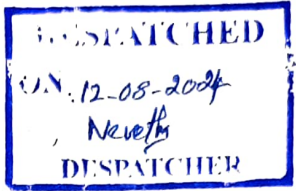 DESPATCHED
ON. 12-08-2024
DESPATCHER